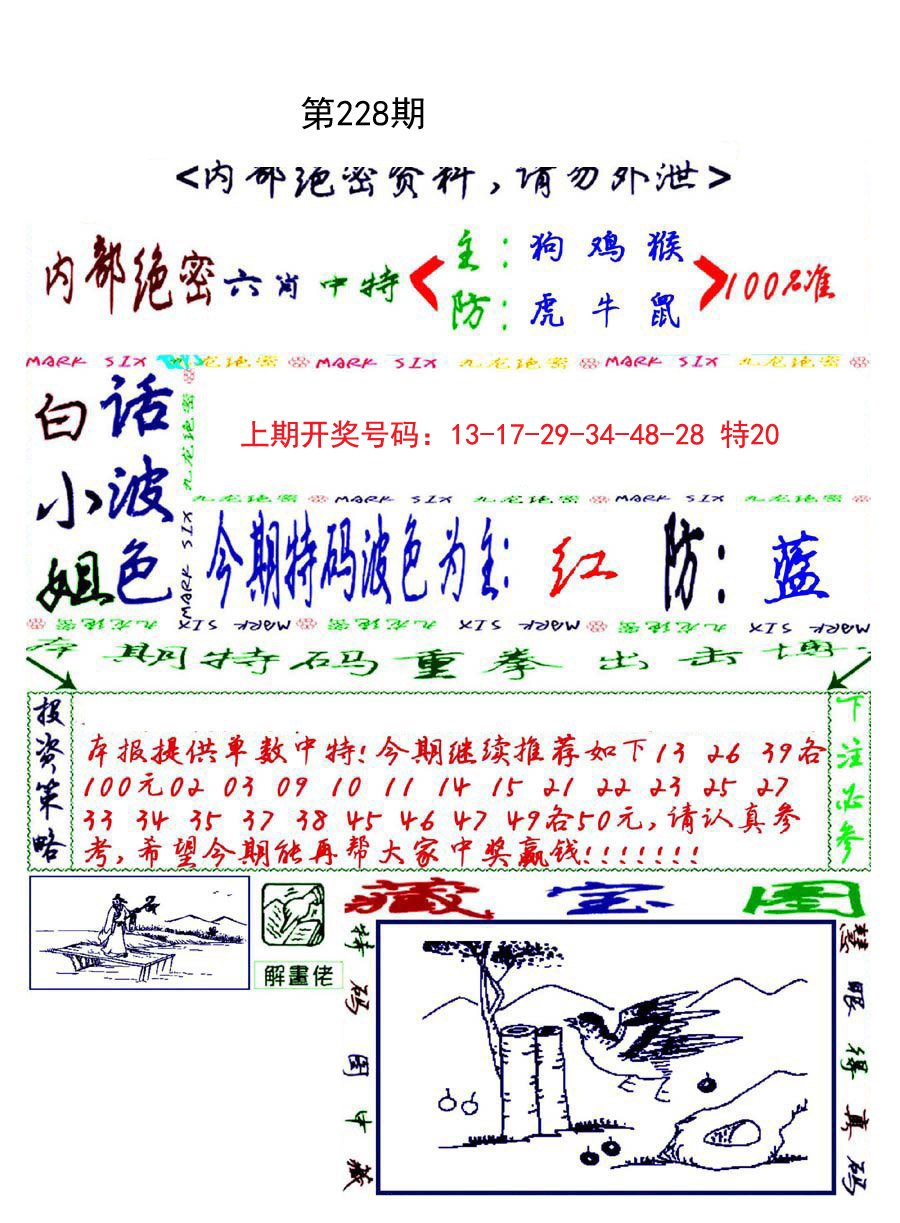 第228期
<内部绝密资料,请勿外泄>
内部绝密六肖中特
主:狗 鸡 猴
防:虎 牛 鼠
100%准
MARK SIX 九龙绝密 MARK SIX 九龙绝密 MARK SIX 九龙绝密
白话
小波
姐色
九龙绝密
MARK SIX
上期开奖号码：13-17-29-34-48-28 特20
九龙绝密 MARK SIX 九龙绝密 MARK SIX 九龙绝密
今期特码波色为主: 红 防: 蓝
九龙绝密 MARK SIX 九龙绝密 MARK SIX 九龙绝密 MARK SIX
本期特码重拳出击博
投资策略
本报提供单数中特!今期继续推荐如下13 26 39各
100元02 03 09 10 11 14 15 21 22 23 25 27
33 34 35 37 38 45 46 47 49各50元,请认真参
考,希望今期能再帮大家中奖赢钱!!!!!!!
下注必参
解畫佬
藏宝图
特码图中藏
慧眼得真码